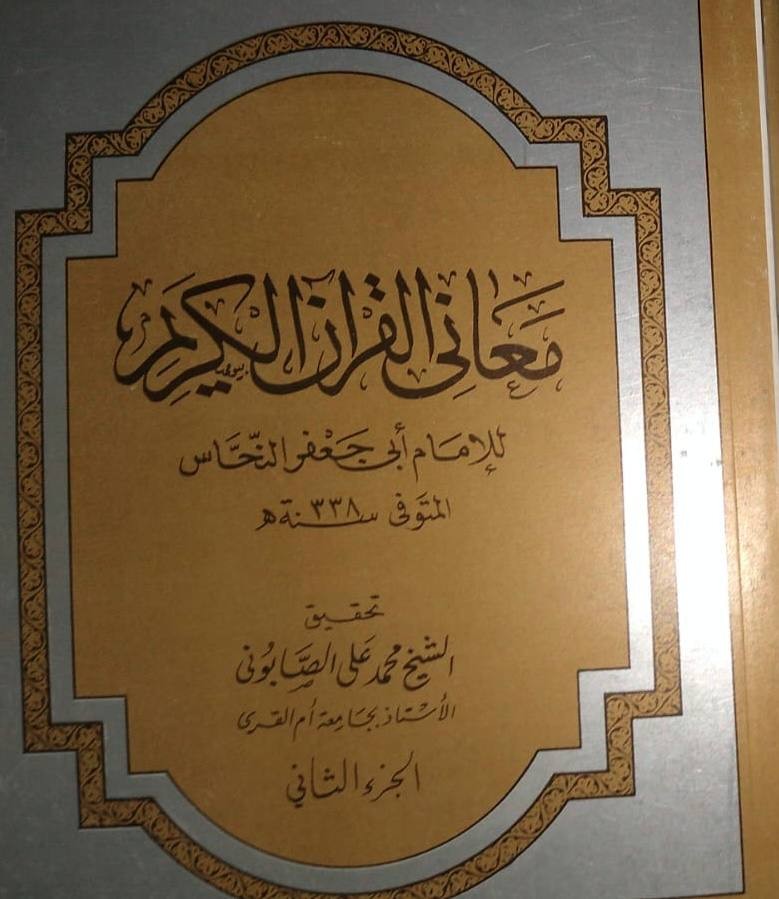 معاني القرآن الكريم
للإمام أبي جعفر النحاس
المتوفى سنة ٣٣٨ هـ
تحقيق
الشيخ محمد علي الصابوني
الأستاذ بجامعة أم القرى
الجزء الثاني